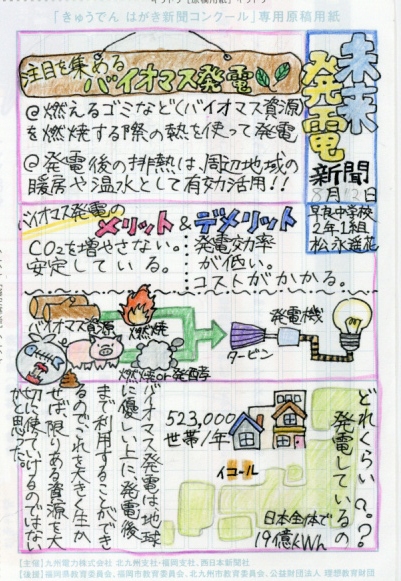 「きゅうでん はがき新聞コンクール」専用原稿用紙
未来
発電
新聞
8月12日
早良中学校
2年1組
松永遥花
注目を集める
バイオマス発電
@燃えるゴミなど(バイオマス資源)
を燃焼する際の熱を使って発電
@発電後の排熱は、周辺地域の
暖房や温水として有効活用!!
バイオマス発電の
メリット&デメリット
CO₂を増やさない。
安定している。
発電効率
が低い。
コストがかかる。
バイオマス資源
燃焼
燃焼or発酵
タービン
発電機
どれくらい?。?
発電しているの
523,000
世帯/年
イコール
日本全体で
19億kWh
バイオマス発電は地球
に優しい上に発電後
まで利用することができ
るのでこれを大きく生か
せば、限りある資源を大
切に使ていけるのではない
かと思った。
[主催] 九州電力株式会社 北九州支社・福岡支社、西日本新聞社
[後援] 福岡県教育委員会、福岡市教育委員会、北九州市教育委員会、公益財団法人 理想教育財団